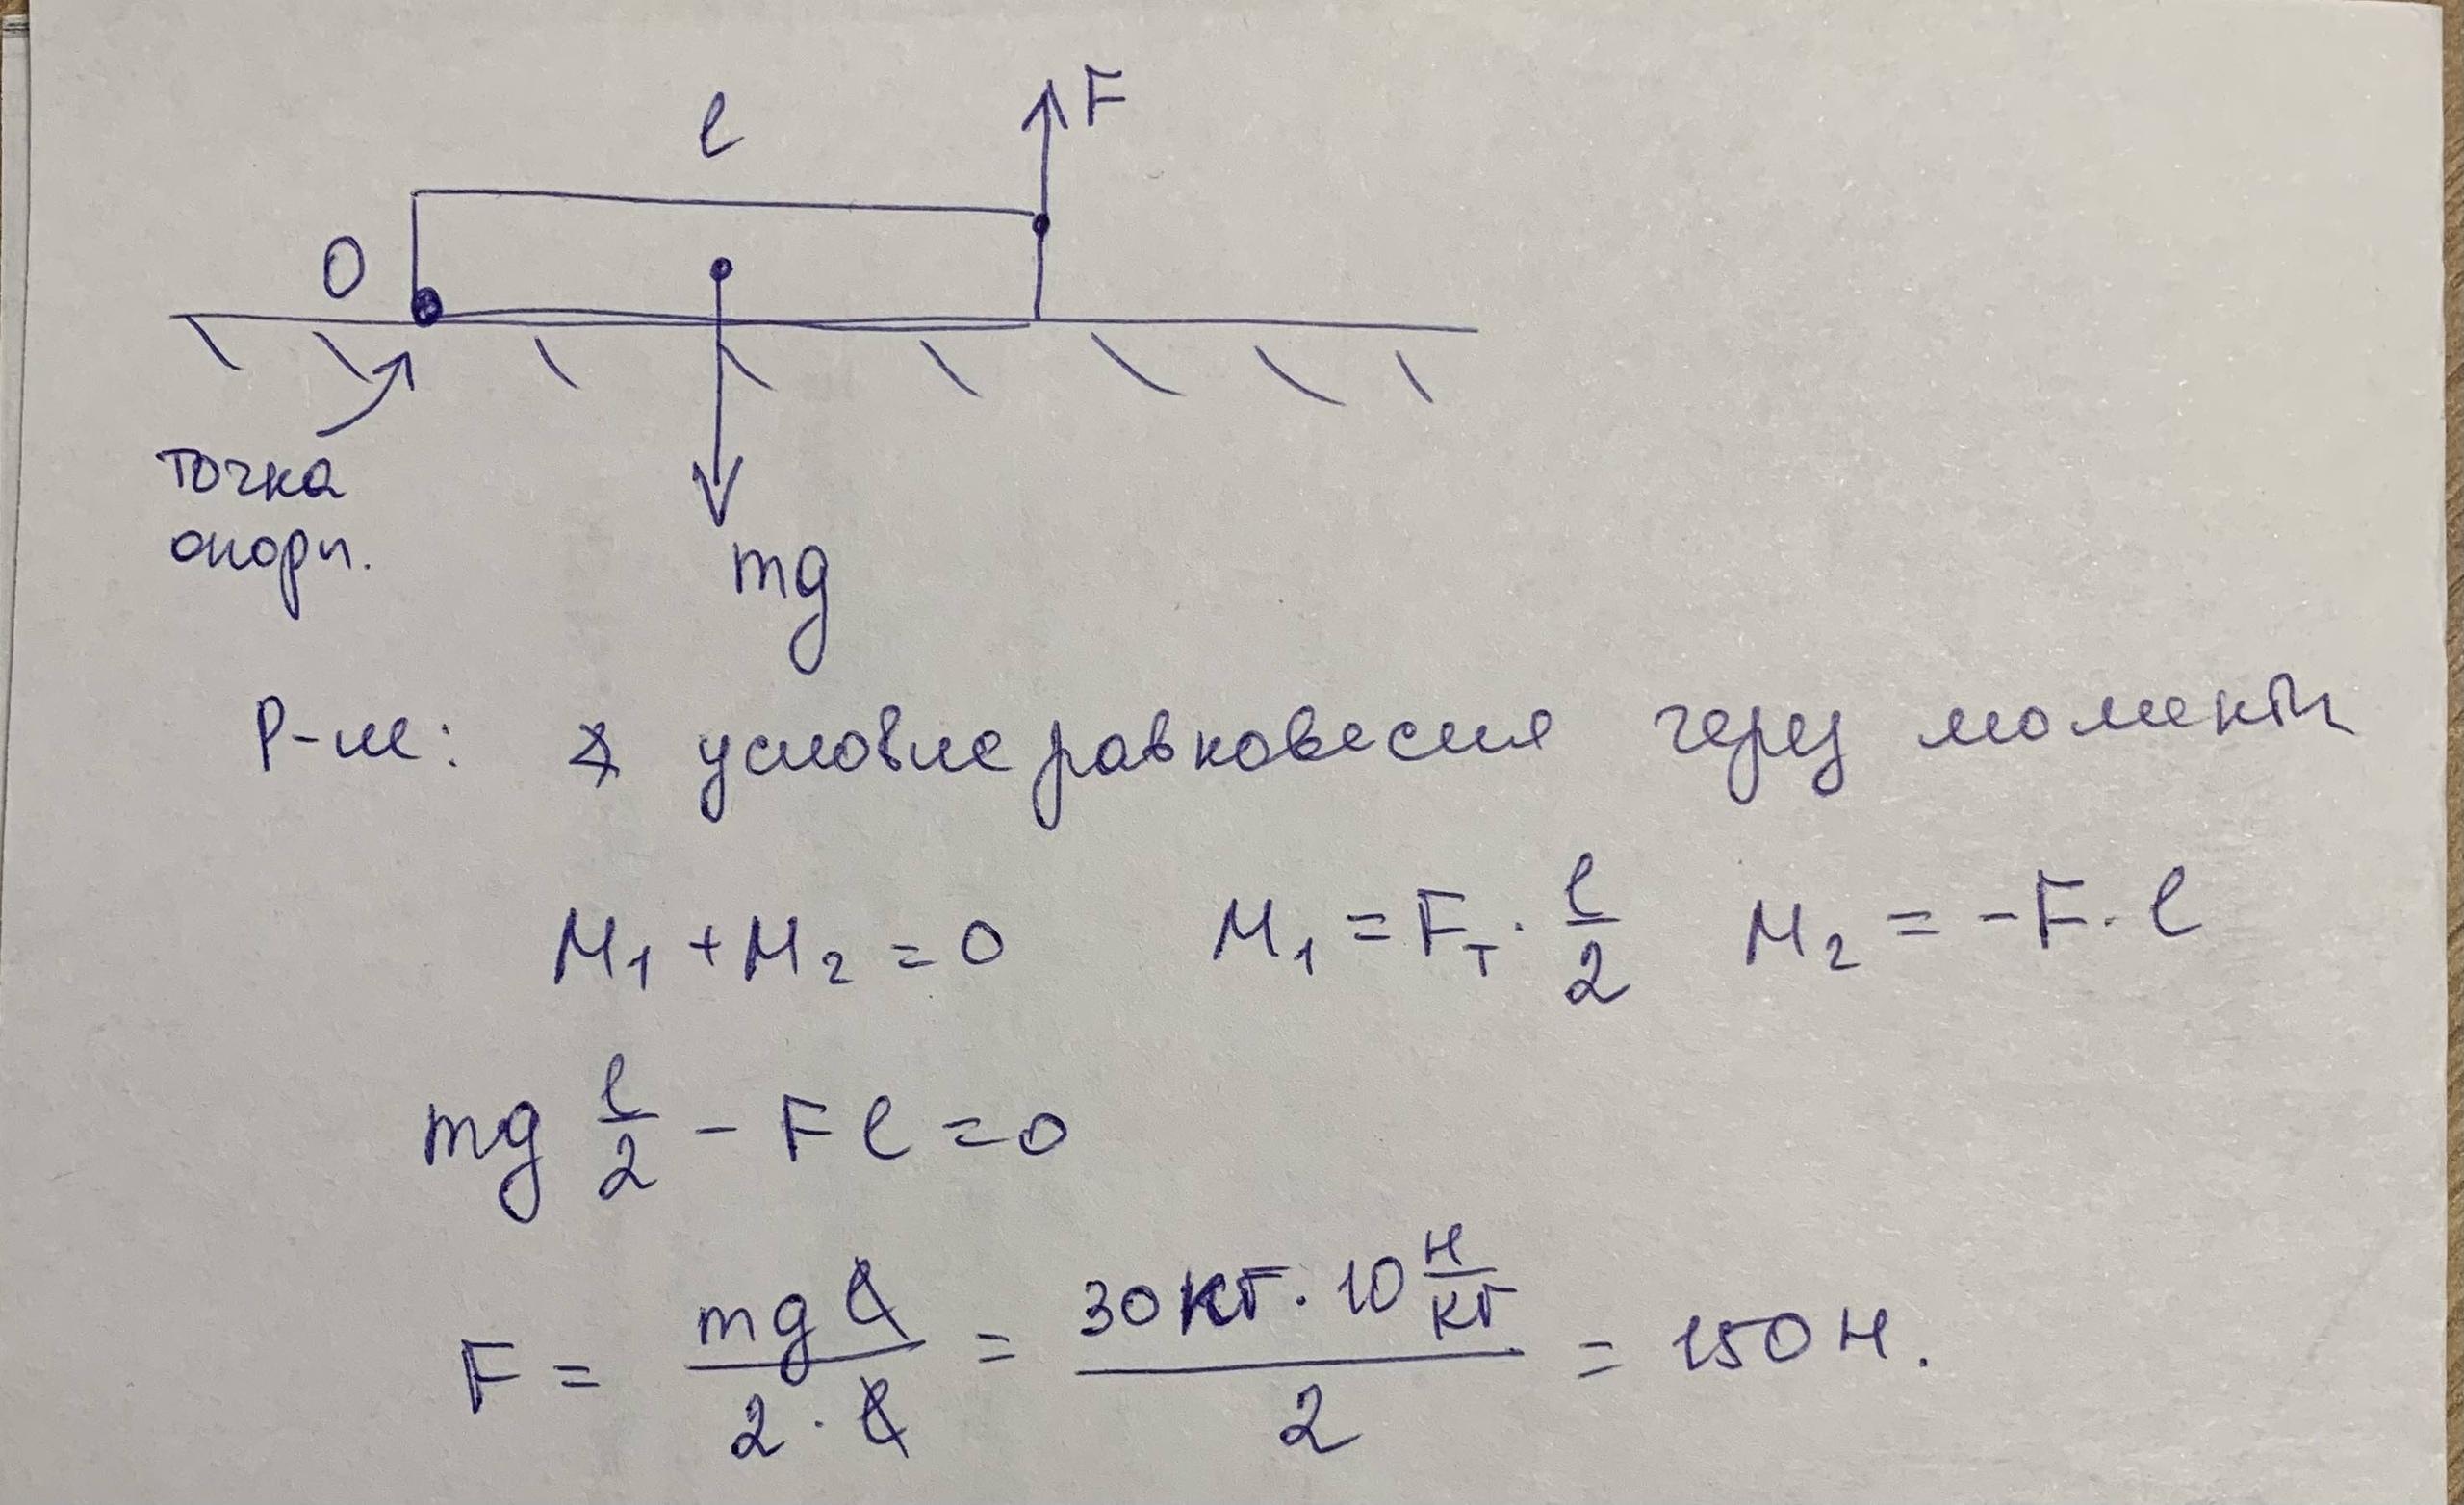 l
F
O
точка
опоры.
mg
Р-м: условие равновесия через моменты
M₁ + M₂ = 0 M₁ = Fт · l/2 M₂ = -F · l
mg l/2 - Fl = 0
F = mg l / 2 · l = 30 кг · 10 Н/кг / 2 = 150 Н.